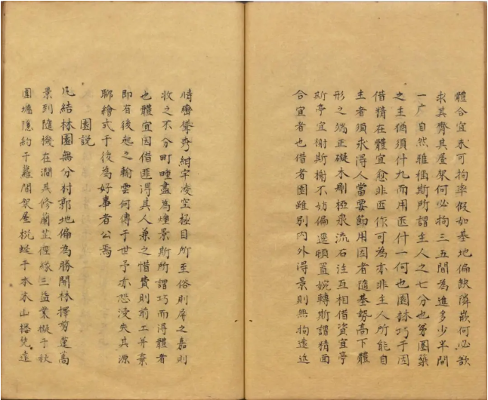 體合宜未可拘率假如基地偏缺隣嵌何必欲
求其齊其屋架何必拘三五間為進多少半間
一广自然雅稱斯所謂主人之七分也第園築
之主猶須什九而用匠什一何也園林巧于因
借精在體宜愈非匠作可為亦非主人所能自
主者須求得人當要節用因者隨基勢高下體
形之端正礙木刪椏泉流石注互相借資宜亭
斯亭宜榭斯榭不妨偏逕頓置婉轉斯謂精而
合宜者也借者園雖別內外得景則無拘遠近
晴巒聳秀紺宇凌空極目所至俗則屏之嘉則
收之不分町疃盡為煙景斯所謂巧而得體者
也體宜因借匪得其人兼之惜費則前工並棄
即有後起之輸雲何傳于世予亦恐浸失其源
聊繪式于後為好事者公焉
園說
凡結林園無分村郭地偏為勝開林擇剪蓬蒿
景到隨機在澗共修蘭芷徑緣三益業擬千秋
圍墻隱約于蘿間架屋蜿蜒于木末山樓憑遠